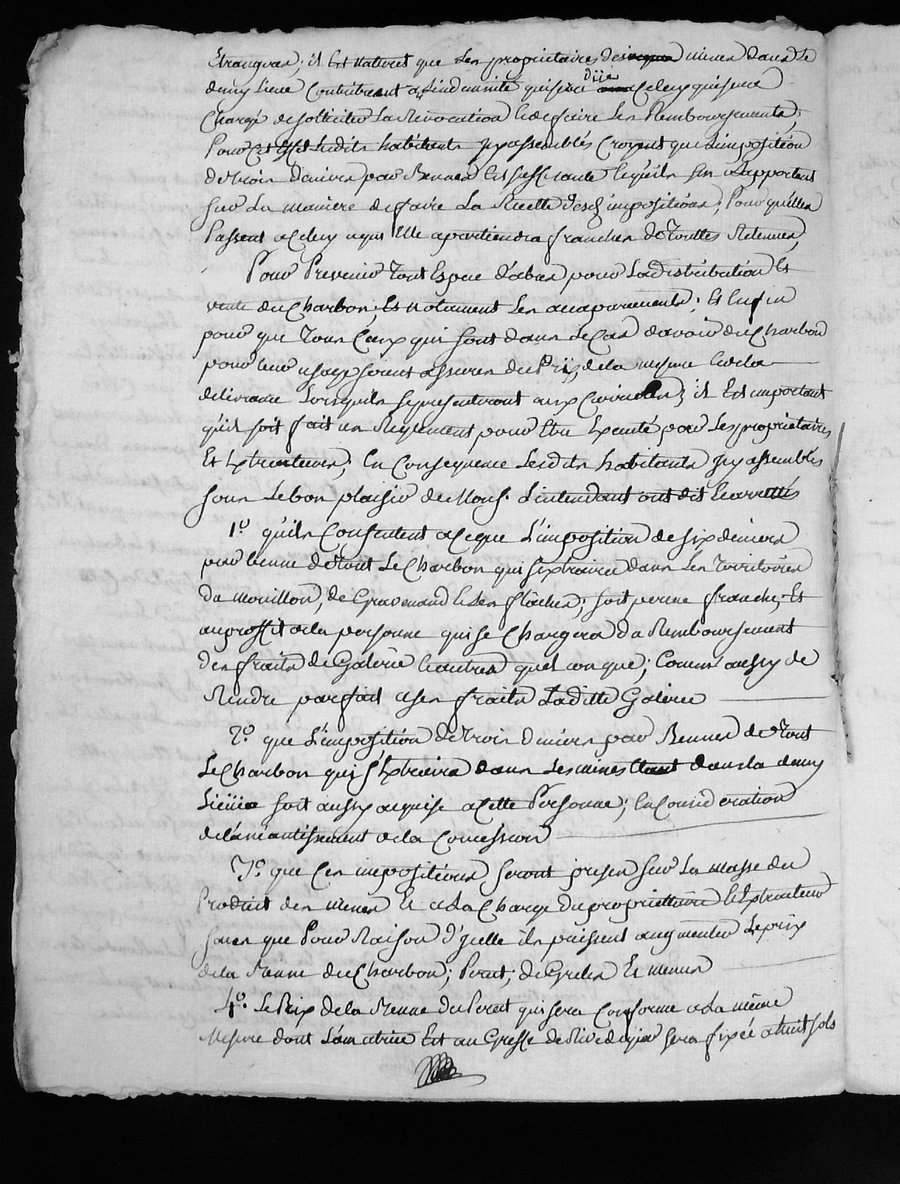 Etrangers; il Est naturel que Les proprietaires des mines Dans Le
demy Lieue Contribuent a L'indemnité qui sera diie a Celuy qui sera
Chargé de solliciter La Revocation & de faire Les Remboursements,
Pour Cet Effet Lesdits habitants jcy assemblés Croyent que L'imposition
de trois deniers par Bennes Est suffisante & qu'ils s'en Rapportent
sur La maniere de faire La Recette desd. impositions; Pour qu'elles
Passent a Celuy a qui Elle apartiendra franches de Touttes Retenues,
Pour Prevenir Tout Espece d'abus pour La distribution Et
vente du Charbon; Et notament Les accaparements; Et Enfin
pour que Tous Ceux qui sont dans Le Cas d'avoir du Charbon
pour leur usage soient assurés du Prix, de la mesure & de la
delivrance Lorsqu'ils se presenteront aux Carrieres; il Est important
qu'il soit fait un Reglement pour Etre Executé par Les proprietaires
Et Extracteurs; En Consequence Lesdits habitants jcy assemblés
sous Le bon plaisir de Mons. L'intendant ont dit & arretté
1.o qu'ils Consentent a Ce que L'imposition de six deniers
par benne de tout Le Charbon qui s'extraira dans Les Territoires
du mouillon, de Gravenand & Les flaches; soit percue franche; Et
au proffit de la personne qui se Chargera du Remboursement
des fraits de Galerie & autres quelconque; Comme aussy de
Rendre parfait a ses fraits Laditte Galerie
2.o que L'imposition de trois deniers par Bennes de tout
Le Charbon qui s'Extraira dans Les mines Etant dans la demy
Lieüe soit aussy acquise a Cette Personne; En Consideration
de l'aneantissement de la Concession
3.o que Ces impositions seront prises sur La masse du
Produit des mines Et a La Charge du proprietaire & Extracteur
sans que Pour Raison d'jcelle ils puissent augmenter Le prix
de la Benne du Charbon; Perat; de Greles Et menus
4.o Le Prix de la Benne du Perat qui sera Conforme a La même
Mesure dont L'amatrice Est au Greffe de Rivedegier sera fixée a huit sols